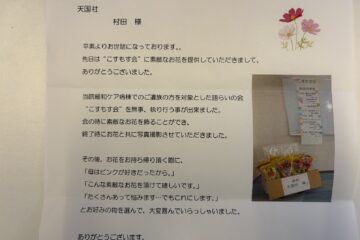 天国社
村田　様
平素よりお世話になっております。。
先日は“こすもす会”に素敵なお花を提供していただきまして、
ありがとうございました。
当院緩和ケア病棟でのご遺族の方を対象とした語らいの会
“こすもす会”を無事、執り行う事が出来ました。
会の時に素敵なお花を飾ることができ、
終了時にお花と共に写真撮影させていただきました。
その後、お花をお持ち帰り頂く際に、
「母はピンクが好きだったから。」
「こんな素敵なお花を頂けて嬉しいです。」
「たくさんあって悩みます…でもこれにします。」
とお好みの物を選んで、大変喜んでいらっしゃいました。
ありがとうございます。